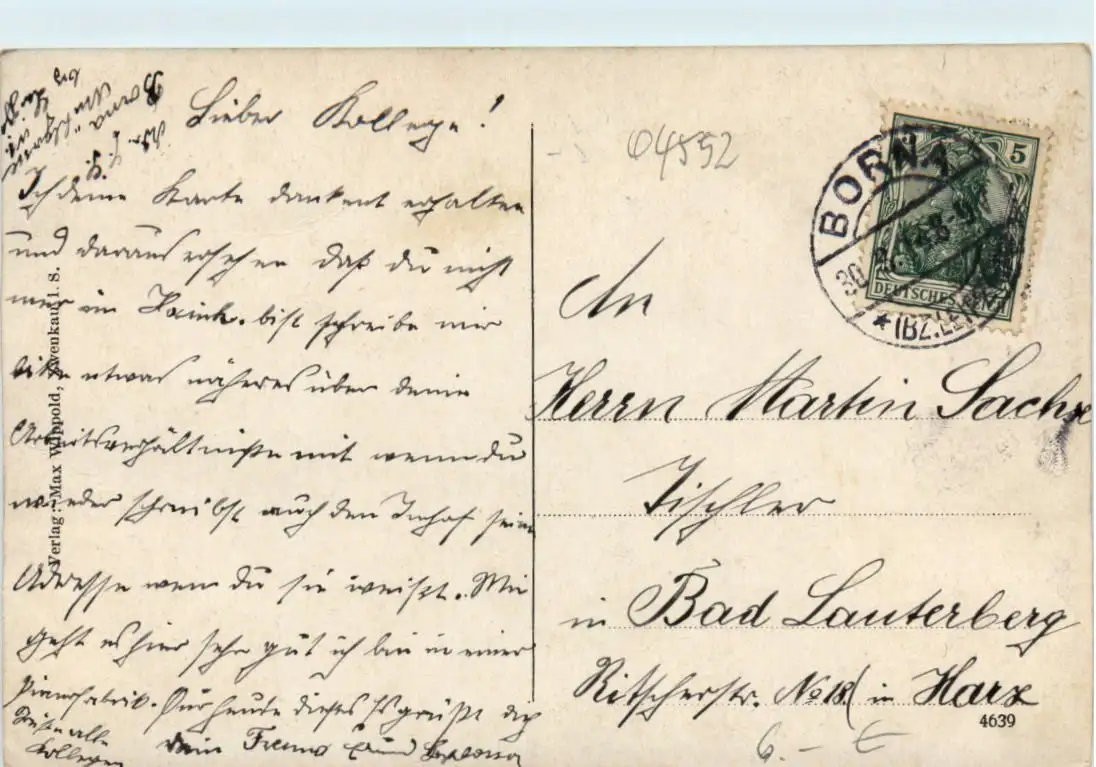 Lieber Kollege!
Ich deine Karte dankent erhalten
und daraus ersehen daß du nicht
mer im bist schreibe mir
bitte etwas näheres über deine
Arbeitsverhältniße mit wenn du
wieder schreibst auch den seine
Adresse wen du sie weißt. Mir
geht es hier sehr gut ich bin in einer
Pianofabrik. Für heute dieses Es grüßt dich
dein Freund
Grüße alle
Kollegen
Borna
Verlag: Max Wippold, Zwenkau i. S.
04552
BORNA
(BZ. LEIPZIG)
5
DEUTSCHES REICH
An
Herrn Martin Sachse
Tischler
in Bad Lauterberg
Ritscherstr. No 18 in Harz
4639
6.- €